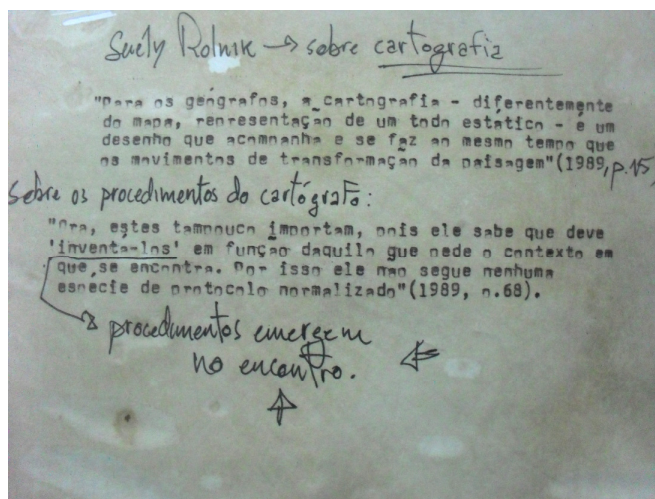 Suely Rolnik → sobre cartografia
"Para os geógrafos, a cartografia - diferentemente
do mapa, representação de um todo estático - é um
desenho que acompanha e se faz ao mesmo tempo que
os movimentos de transformação da paisagem"(1989, p.15)
Sobre os procedimentos do cartógrafo:
"Ora, estes tampouco importam, pois ele sabe que deve
'inventa-los' em função daquilo que pede o contexto em
que se encontra. Por isso ele nao segue nenhuma
especie de protocolo normalizado"(1989, p.68).
procedimentos emergem
no encontro.